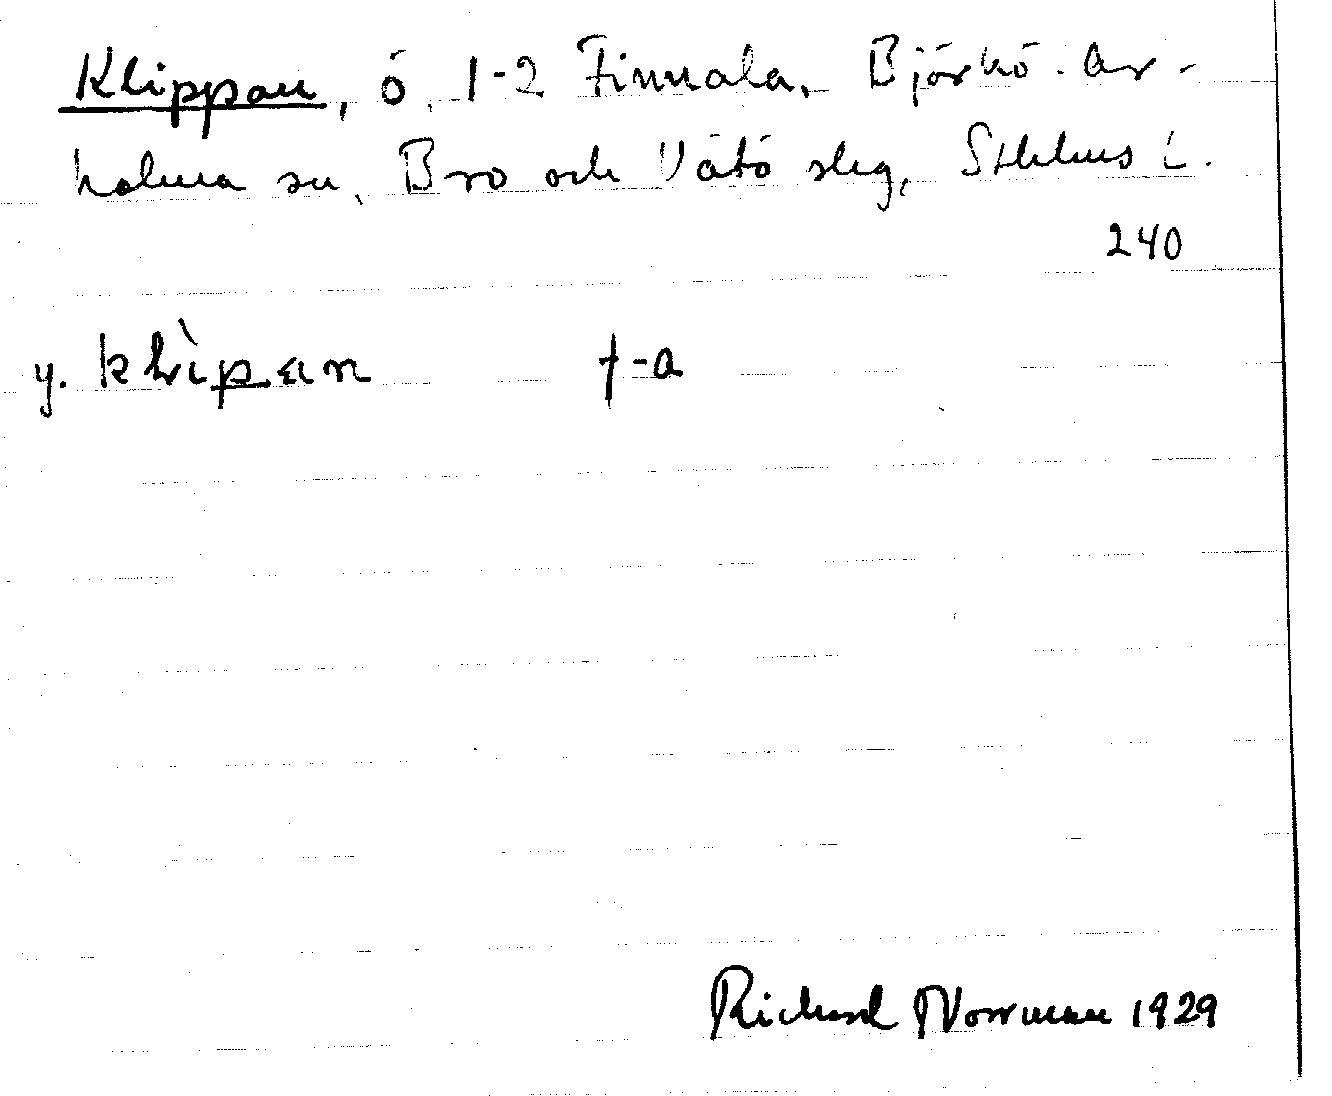 Klippan, ö, 1-2 Finnala, Björkö-Ar-
holma sn, Bro och Vätö slg, Sthlms L.
240
y. klìpan †-a
Richard Norrman 1929